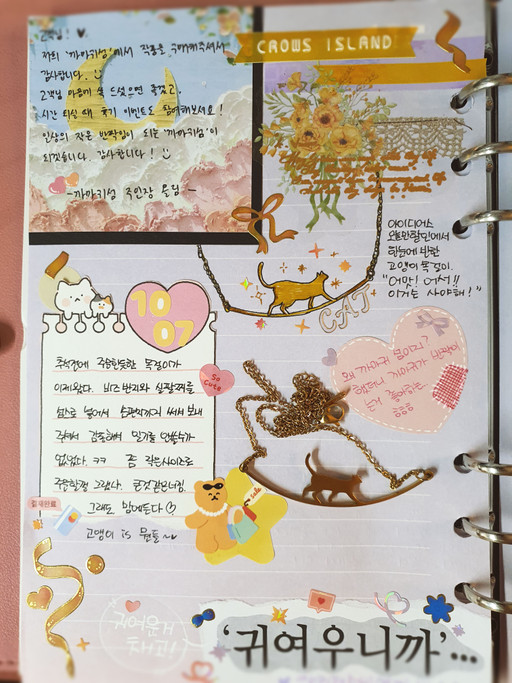 고객님! ♥
저희 '까까키섬'에서 작품을 구매해주셔서
감사합니다. :)
고객님 마음에 쏙 드셨으면 좋겠고,
시간 되실 때 후기 이벤트도 참여해보세요!
일상의 작은 반짝임이 되는 '까까키섬'이
되겠습니다. 감사합니다! :)
-까까키섬 주인장 올림-
CROWS ISLAND
아이디어스
오늘만할인에서
한눈에 반한
고앵이 목걸이.
"어맛! 어서!!
이거는 사야해!"
CAT
10
07
추석전에 주문했던 목걸이가
이제왔다. 비즈반지와 실팔찌를
덤으로 넣어서 손편지까지 써서 보내
주셔서 감동해서 일기를 안쓸수가
없었다. ㅋㅋ 좀 작은사이즈로
주문할껄 그랬나.
그래도 맘에든다 ♡
고앵이 is 뭔들~♡
So
Cute
왜 까마귀 섬이지?
했더니 까마귀가 반짝이
는거 좋아하는
ㅎㅎㅎ
결제완료
Sale
귀여운게
최고!
'귀여우니까'...